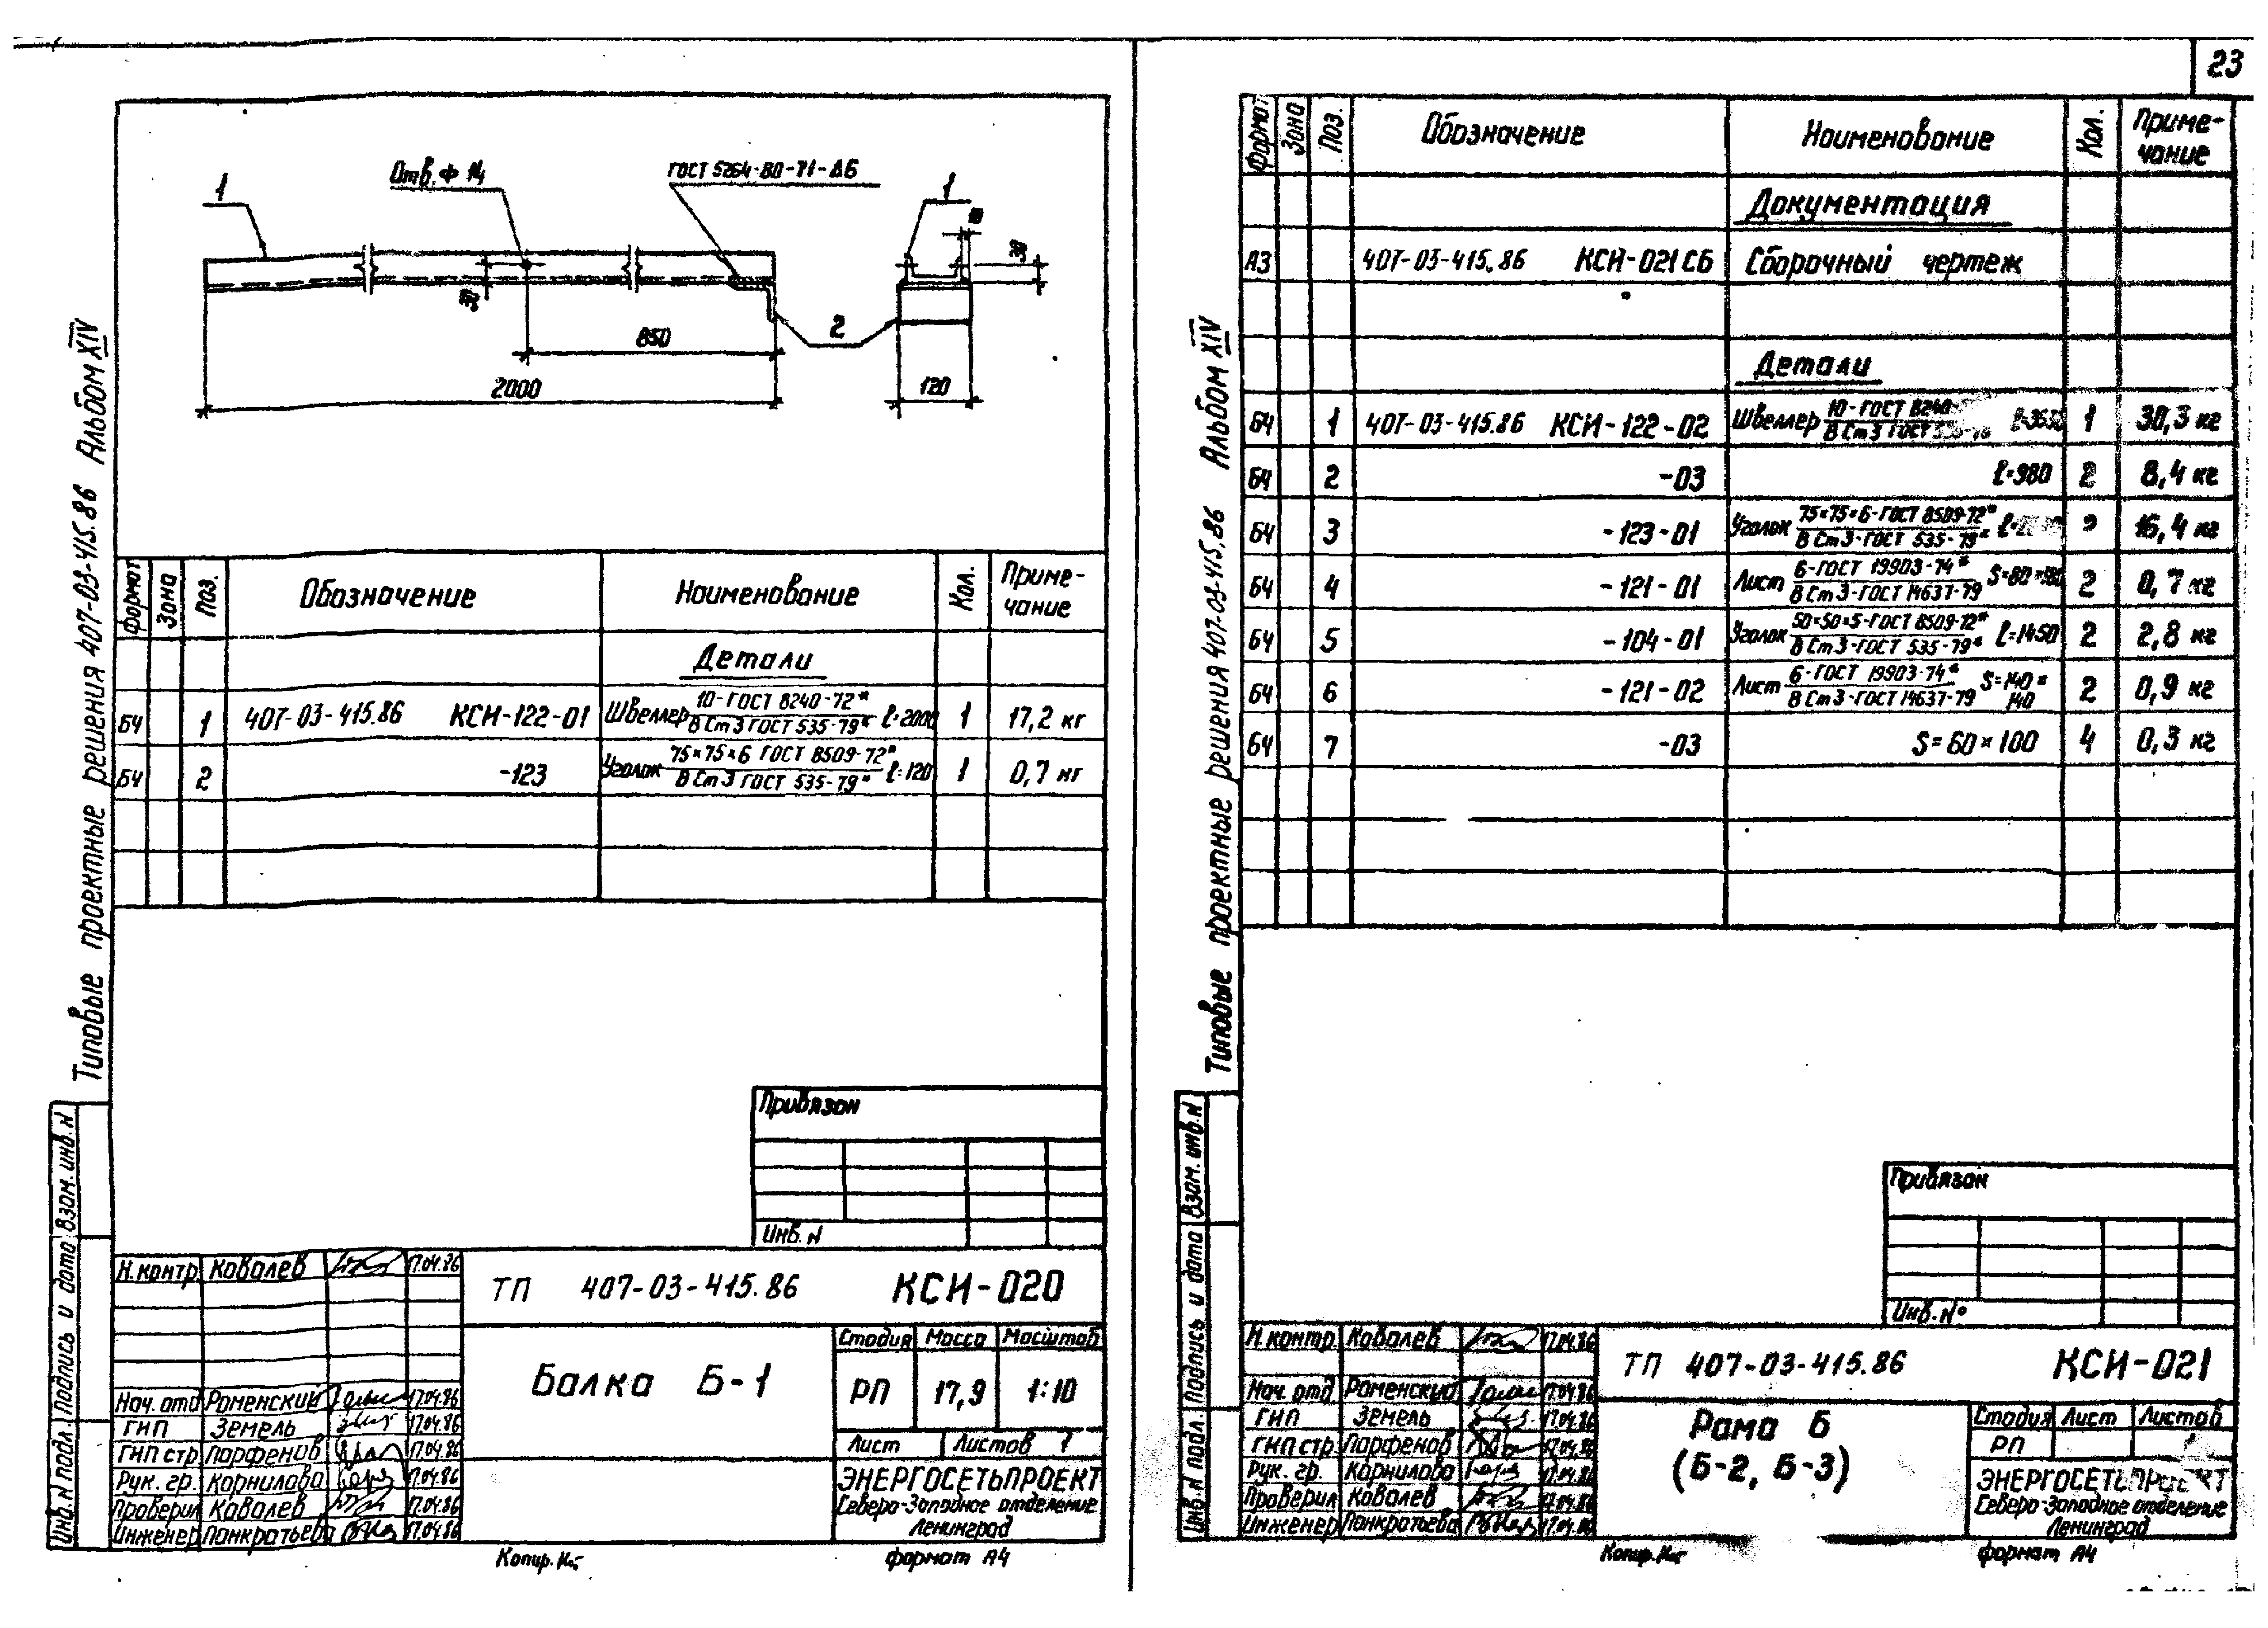 23
Отв. Ф 14
ГОСТ 5264-80-Т1-Δ6
1
1
10
30
30
2
850
2000
120
Формат Зона Поз. Обозначение Наименование Кол. Приме-
чание
Детали
БЧ 1 407-03-415.86 КСИ-122-01 Швеллер 10-ГОСТ 8240-72* l=2000 1 17,2 кг
В Ст 3 ГОСТ 535-79*
БЧ 2 -123 Уголок 75×75×6 ГОСТ 8509-72* l=120 1 0,7 кг
В Ст 3 ГОСТ 535-79*
Типовые проектные решения 407-03-415.86 Альбом XIV
Привязан
Инв. N
Инв. N подл. Подпись и дата Взам. инв. N
Н.контр. Ковалев 17.04.86
Нач. отд Роменский 17.04.86
ГНП Земель 17.04.86
ГНП стр. Парфенов 17.04.86
Рук. гр. Корнилова 17.04.86
Проверил Ковалев 17.04.86
Инженер Панкратьева 17.04.86
ТП 407-03-415.86 КСИ-020
Балка Б-1
Стадия Масса Масштаб
РП 17,9 1:10
Лист Листов 1
ЭНЕРГОСЕТЬПРОЕКТ
Северо-Западное отделение
Ленинград
Копир.
формат А4
Формат Зона Поз. Обозначение Наименование Кол. Приме-
чание
Документация
А3 407-03-415.86 КСИ-021 СБ Сборочный чертеж
Детали
БЧ 1 407-03-415.86 КСИ-122-02 Швеллер 10-ГОСТ 8240- 1 30,3 кг
В Ст 3 ГОСТ
БЧ 2 -03 l=980 2 8,4 кг
БЧ 3 -123-01 Уголок 75×75×6-ГОСТ 8509-72* 16,4 кг
В Ст 3-ГОСТ 535-79*
БЧ 4 -121-01 Лист 6-ГОСТ 19903-74* 2 0,7 кг
В Ст 3-ГОСТ 14637-79
БЧ 5 -104-01 Уголок 50×50×5-ГОСТ 8509-72* l=1450 2 2,8 кг
В Ст 3-ГОСТ 535-79*
БЧ 6 -121-02 Лист 6-ГОСТ 19903-74* S=140× 2 0,9 кг
В Ст 3-ГОСТ 14637-79 140
БЧ 7 -03 S=60×100 4 0,3 кг
Типовые проектные решения 407-03-415.86 Альбом XIV
Привязан
Инв. N°
Инв. N подл. Подпись и дата Взам. инв. N
Н.контр. Ковалев 17.04.86
Нач. отд Роменский 17.04.86
ГНП Земель 17.04.86
ГНП стр. Парфенов 17.04.86
Рук. гр. Корнилова 17.04.86
Проверил Ковалев 17.04.86
Инженер Панкратьева 17.04.86
ТП 407-03-415.86 КСИ-021
Рама Б
(Б-2, Б-3)
Стадия Лист Листов
РП
ЭНЕРГОСЕТЬПРОЕКТ
Северо-Западное отделение
Ленинград
Копир.
формат А4